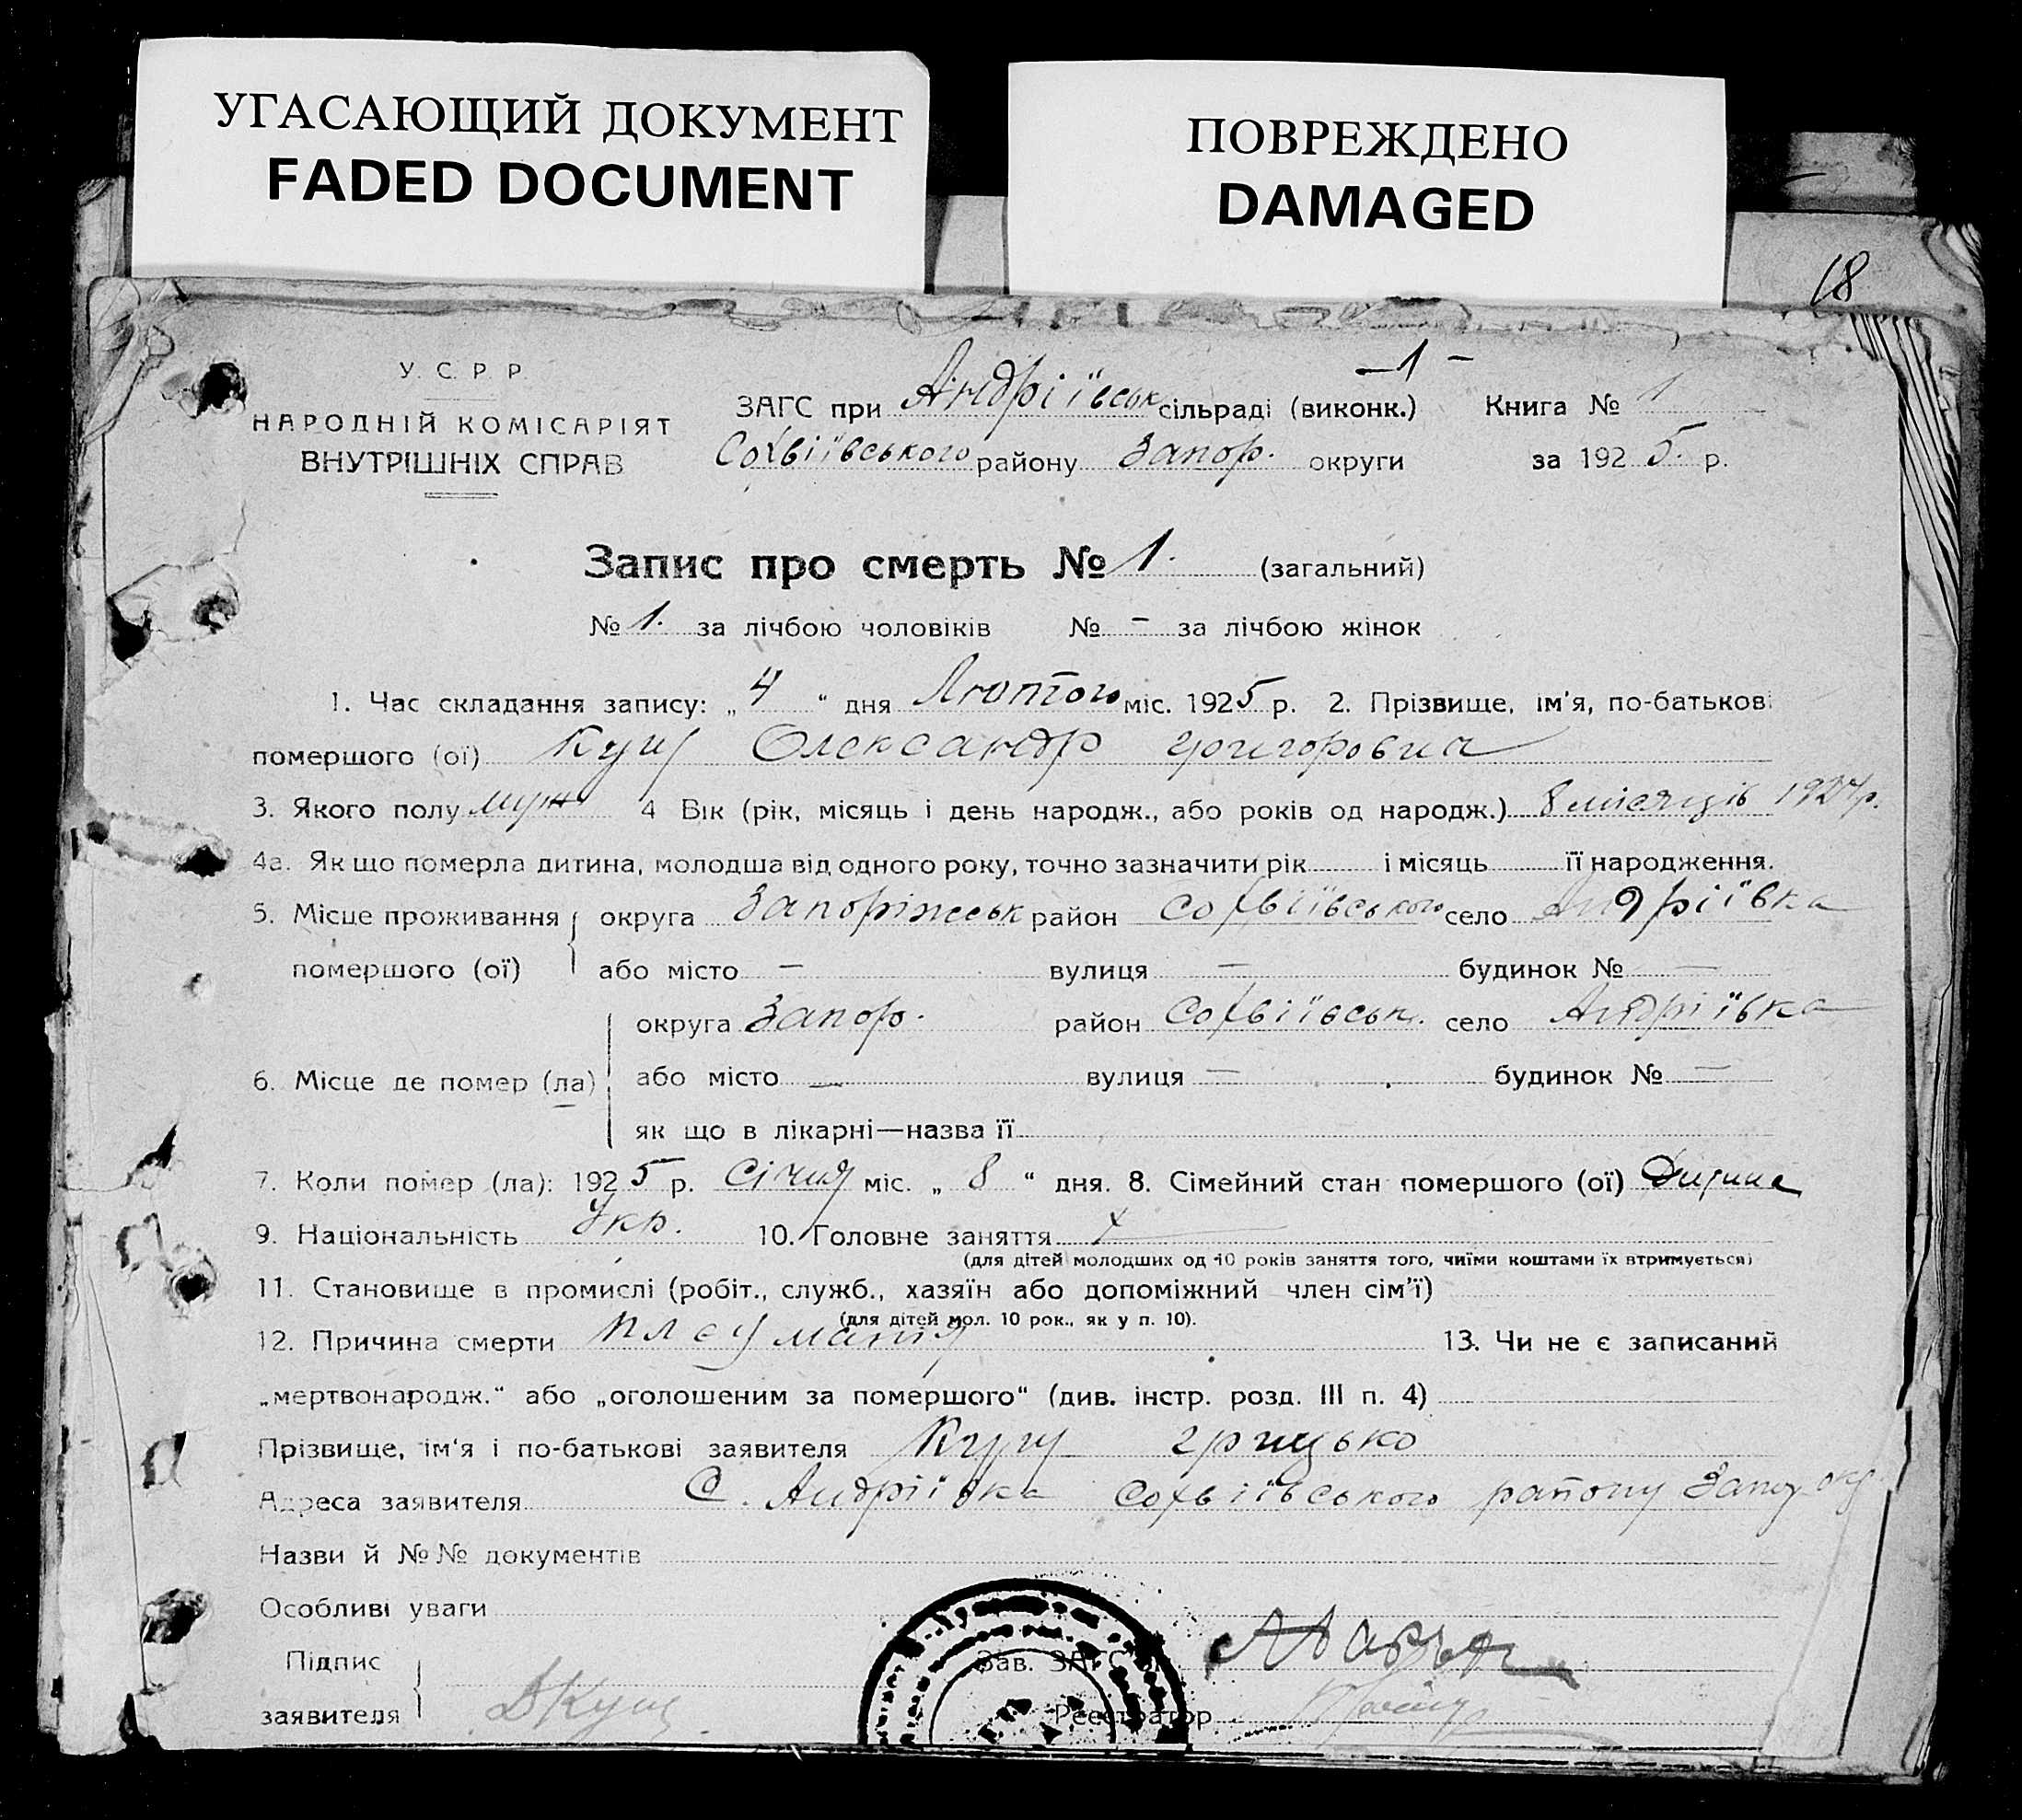 УГАСАЮЩИЙ ДОКУМЕНТ
FADED DOCUMENT
ПОВРЕЖДЕНО
DAMAGED
18
— 1 —
У. С. Р. Р.
НАРОДНІЙ КОМІСАРІЯТ
ВНУТРІШНІХ СПРАВ
ЗАГС при Андріївськ сільраді (виконк.) Книга № 1
Софіївського району Запор. округи за 1925. р.
Запис про смерть № 1. (загальний)
№ 1. за лічбою чоловіків № – за лічбою жінок
1. Час складання запису: „4“ дня Лютого міс. 1925 р. 2. Прізвище, ім'я, по-батькові
помершого (ої) Кущ Олександр Григорович
3. Якого полу муж 4 Вік (рік, місяць і день народж., або років од народж.) 8 місяців 1924р.
4а. Як що померла дитина, молодша від одного року, точно зазначити рік і місяць її народження.
5. Місце проживання помершого (ої) округа Запоріжськ район Софвіївського село Андріївка
або місто – вулиця – будинок № –
6. Місце де помер (ла) округа Запор. район Софвіївськ. село Андріївка
або місто — вулиця — будинок № —
як що в лікарні—назва її
7. Коли помер (ла): 1925 р. Січня міс. „8“ дня. 8. Сімейний стан помершого (ої) Дитина
9. Національність Укр. 10. Головне заняття
(для дітей молодших од 10 років заняття того, чиїми коштами їх втримується)
11. Становище в промислі (робіт., служб., хазяїн або допоміжний член сім'ї)
(для дітей мол. 10 рок., як у п. 10).
12. Причина смерти 13. Чи не є записаний
„мертвонародж.“ або „оголошеним за помершого“ (див. інстр. розд. III п. 4)
Прізвище, ім'я і по-батькові заявителя Кущ Грицько
Адреса заявителя С. Андріївка Софвіївського району
Назви й №№ документів
Особливі уваги
Підпис заявителя Кущ
Зав. ЗАГС'ом
Реєстратор